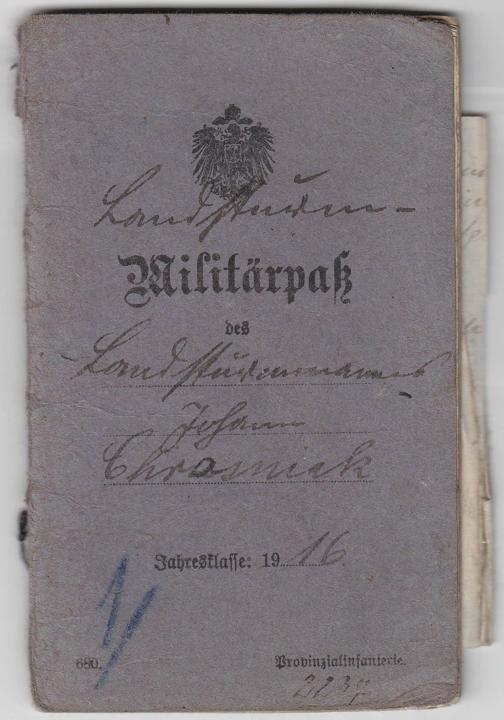 Landsturm-
Militärpaß
des
Landsturmmannes
Johann
Chrosniek
Jahresklasse: 1916
680.
Provinzialinfanterie.